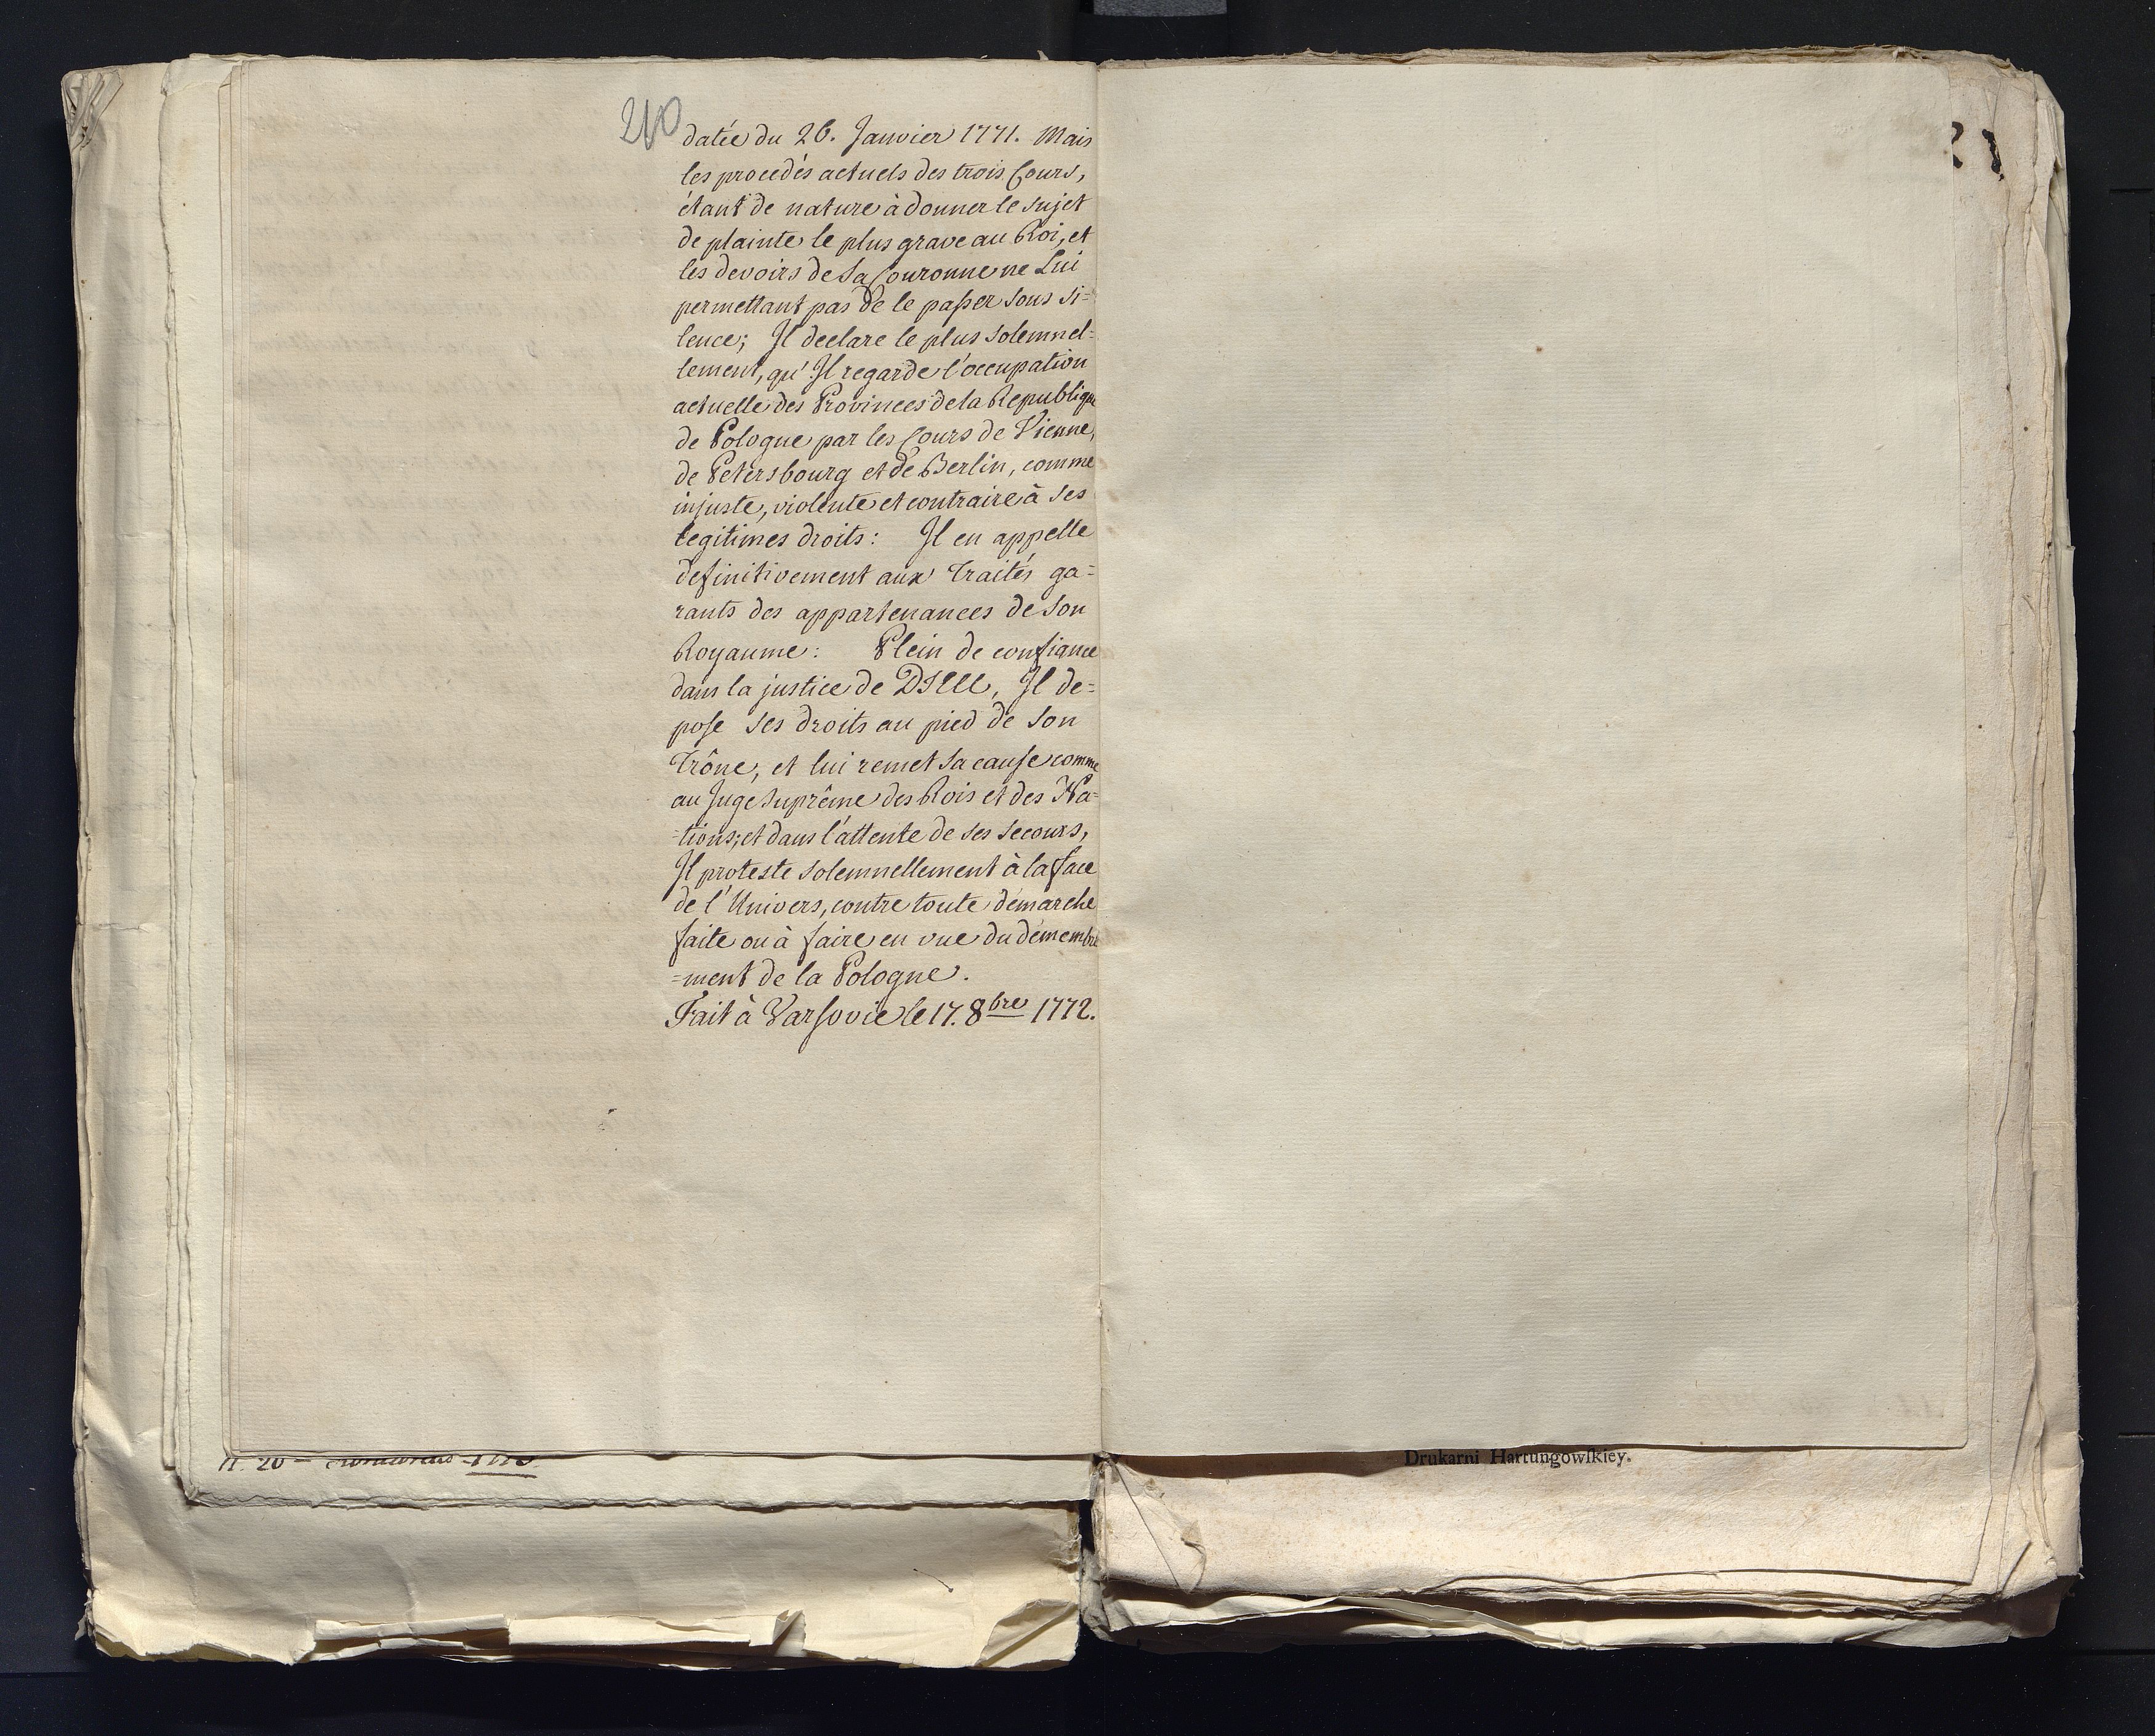 210
datée du 26. Janvier 1771. Mais
les procedés actuels des trois Cours,
étant de nature à donner le sujet
de plainte le plus grave au Roi, et
les devoirs de Sa Couronne ne Lui
permettant pas de le passer sous si=
lence; Il declare le plus solemnel=
lement, qu'Il regarde l'occupation
actuelle des Provinces de la Republique
de Pologne par les Cours de Vienne,
de Petersbourg et de Berlin, comme
injuste, violente et contraire à ses
legitimes droits: Il en appelle
definitivement aux Traités ga=
rants des appartenances de Son
Royaume: Plein de confiance
dans la justice de DIEU, Il de=
pose ses droits au pied de Son
Trône, et lui remet sa cause comme
au Juge Suprême des Rois et des Na=
=tions; et dans l'attente de ses secours,
Il proteste solemnellement à la face
de l'Univers, contre toute démarche
faite ou à faire en vue du démembre
=ment de la Pologne.
Fait à Varsovie le 17. 8bre 1772.
Drukarni Hartungowſkiey.